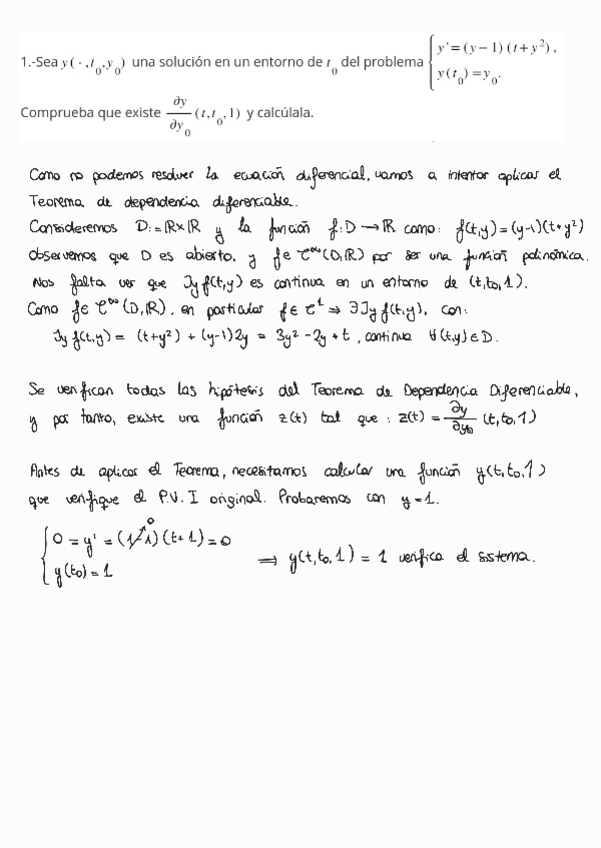 1.-Sea y( · ,t₀,y₀) una solución en un entorno de t₀ del problema { y'=(y−1)(t+y²),
y(t₀)=y₀.
Comprueba que existe ∂y/∂y₀ (t,t₀,1) y calcúlala.
Como no podemos resolver la ecuación diferencial, vamos a intentar aplicar el
Teorema de dependencia diferenciable.
Consideremos D:=ℝ×ℝ y la función f:D→ℝ como: f(t,y)=(y-1)(t+y²)
Observemos que D es abierto, y f∈C^∞(D,ℝ) por ser una función polinómica.
Nos falta ver que Jyf(t,y) es continua en un entorno de (t,t₀,1).
Como f∈C^∞(D,ℝ), en particular f∈C¹ ⇒ ∃Jyf(t,y), con:
Jyf(t,y) = (t+y²) + (y-1)2y = 3y²-2y+t, continua ∀(t,y)∈D.
Se verifican todas las hipótesis del Teorema de Dependencia Diferenciable,
y por tanto, existe una función z(t) tal que : z(t) = ∂y/∂y₀ (t,t₀,1)
Antes de aplicar el Teorema, necesitamos calcular una función y(t,t₀,1)
que verifique el P.V.I original. Probaremos con y=1.
{ 0 = y' = (1-1)⁰(t+1) = 0
y(t₀)=1 ⇒ y(t,t₀,1) = 1 verifica el sistema.